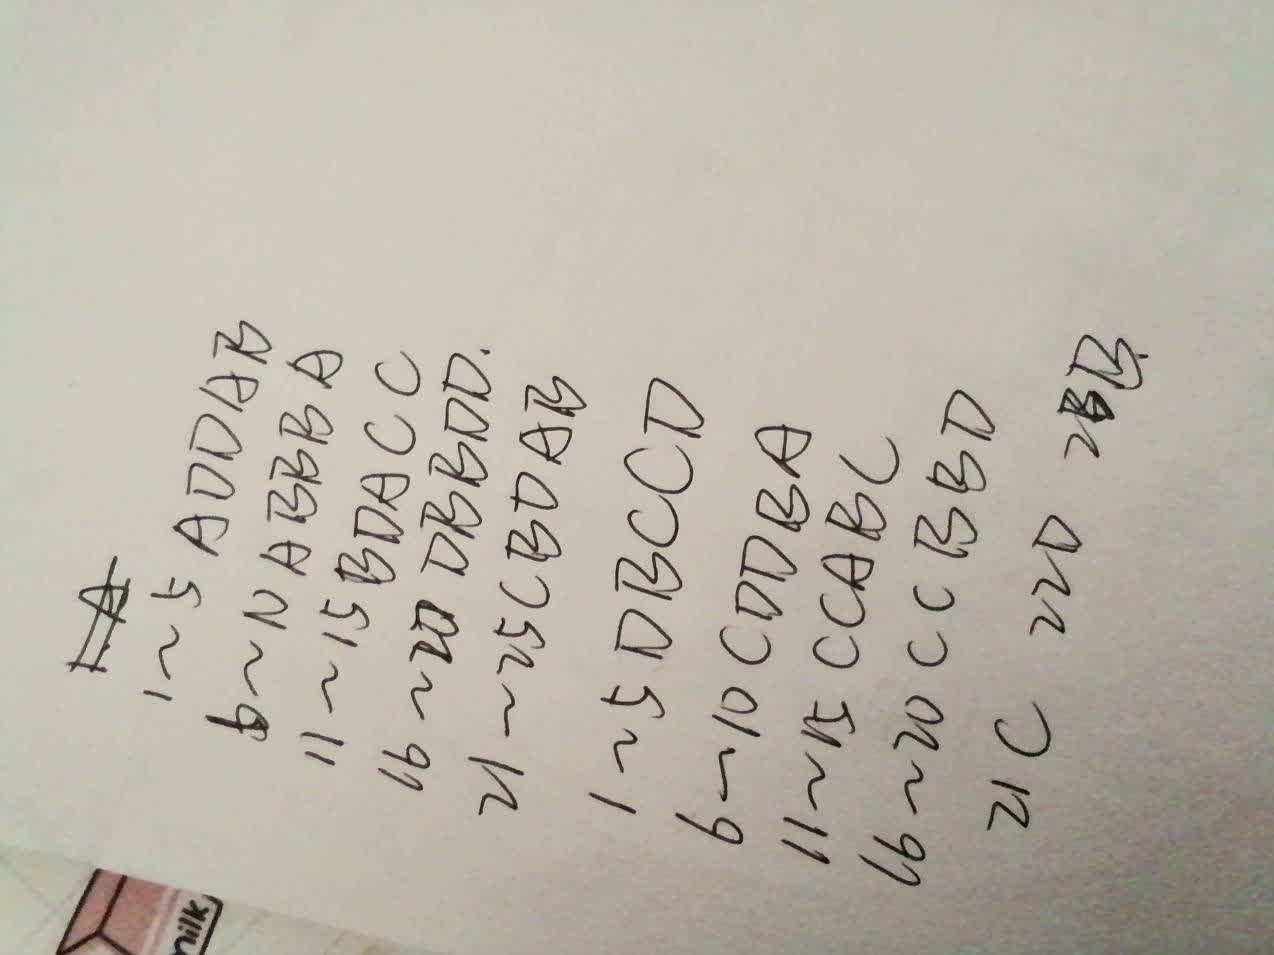 1~5 ADDAB
6~10 ABBBA
11~15 BDACC
16~20 DBBDD.
21~25 CBDAB
1~5 DBCCD
6~10 CDDBA
11~15 CCABC
16~20 CCBBD
21 C 22D 23B
milk